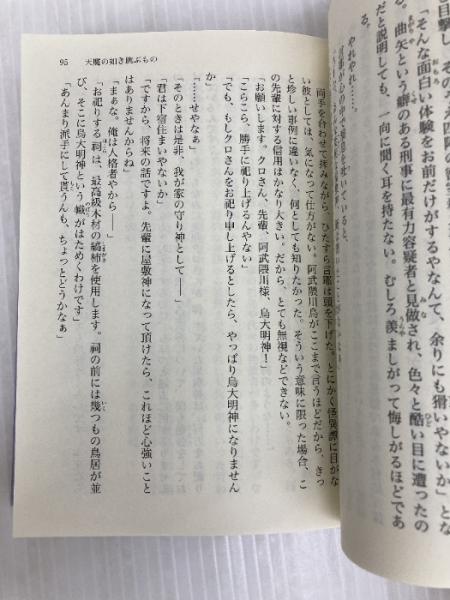 を目撃し、その
「そんな面白い体験をお前だけがするやなんて、余りにも狡いやないか」とな
。曲矢という癖のある刑事に最有力容疑者と見做され、色々と酷い目に遭ったの
だと説明しても、一向に聞く耳を持たない。むしろ羨ましがって悔しがるほどであ
やれやれ……。
95 天魔の如き跳ぶもの
両手を合わせて拝みながら、ひたすら言耶は頭を下げた。とにかく怪異譚に目がな
い彼としては、気になって仕方がない。阿武隈川烏がここまで言うほどだから、きっ
と珍しい事例に違いなく、何としても知りたかった。そういう意味に限った場合、こ
の先輩に対する信用はかなり大きい。だから、とても無視などできない。
「お願いします。クロさん、先輩、阿武隈川様、烏大明神!」
「こらこら、勝手に祀り上げるんやない」
「でも、もしクロさんをお祀り申し上げるとしたら、やっぱり烏大明神になりません
か」
「……せやなぁ」
「そのときは是非、我が家の守り神として――」
「君は下宿住まいやないか」
「ですから、将来の話ですよ。先輩に屋敷神になって頂けたら、これほど心強いこと
はありませんからね」
「まぁな。俺は人格者やから――」
「お祀りする祠は、最高級木材の縞柿を使用します。祠の前には幾つもの鳥居が並
び、そこに烏大明神という幟がはためくわけです」
「あんまり派手にして貰うんも、ちょっとどうかなぁ」